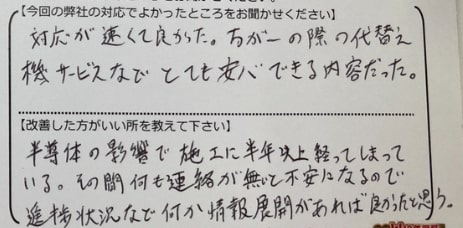 【今回の弊社の対応でよかったところをお聞かせください】
対応が速くて良かった。万が一の際の代替え
機サービスなどとても安心できる内容だった。
【改善した方がいい所を教えて下さい】
半導体の影響で施工に半年以上経ってしまって
いる。その間何も連絡が無いと不安になるので
進捗状況など何か情報展開があれば良かったと思う。